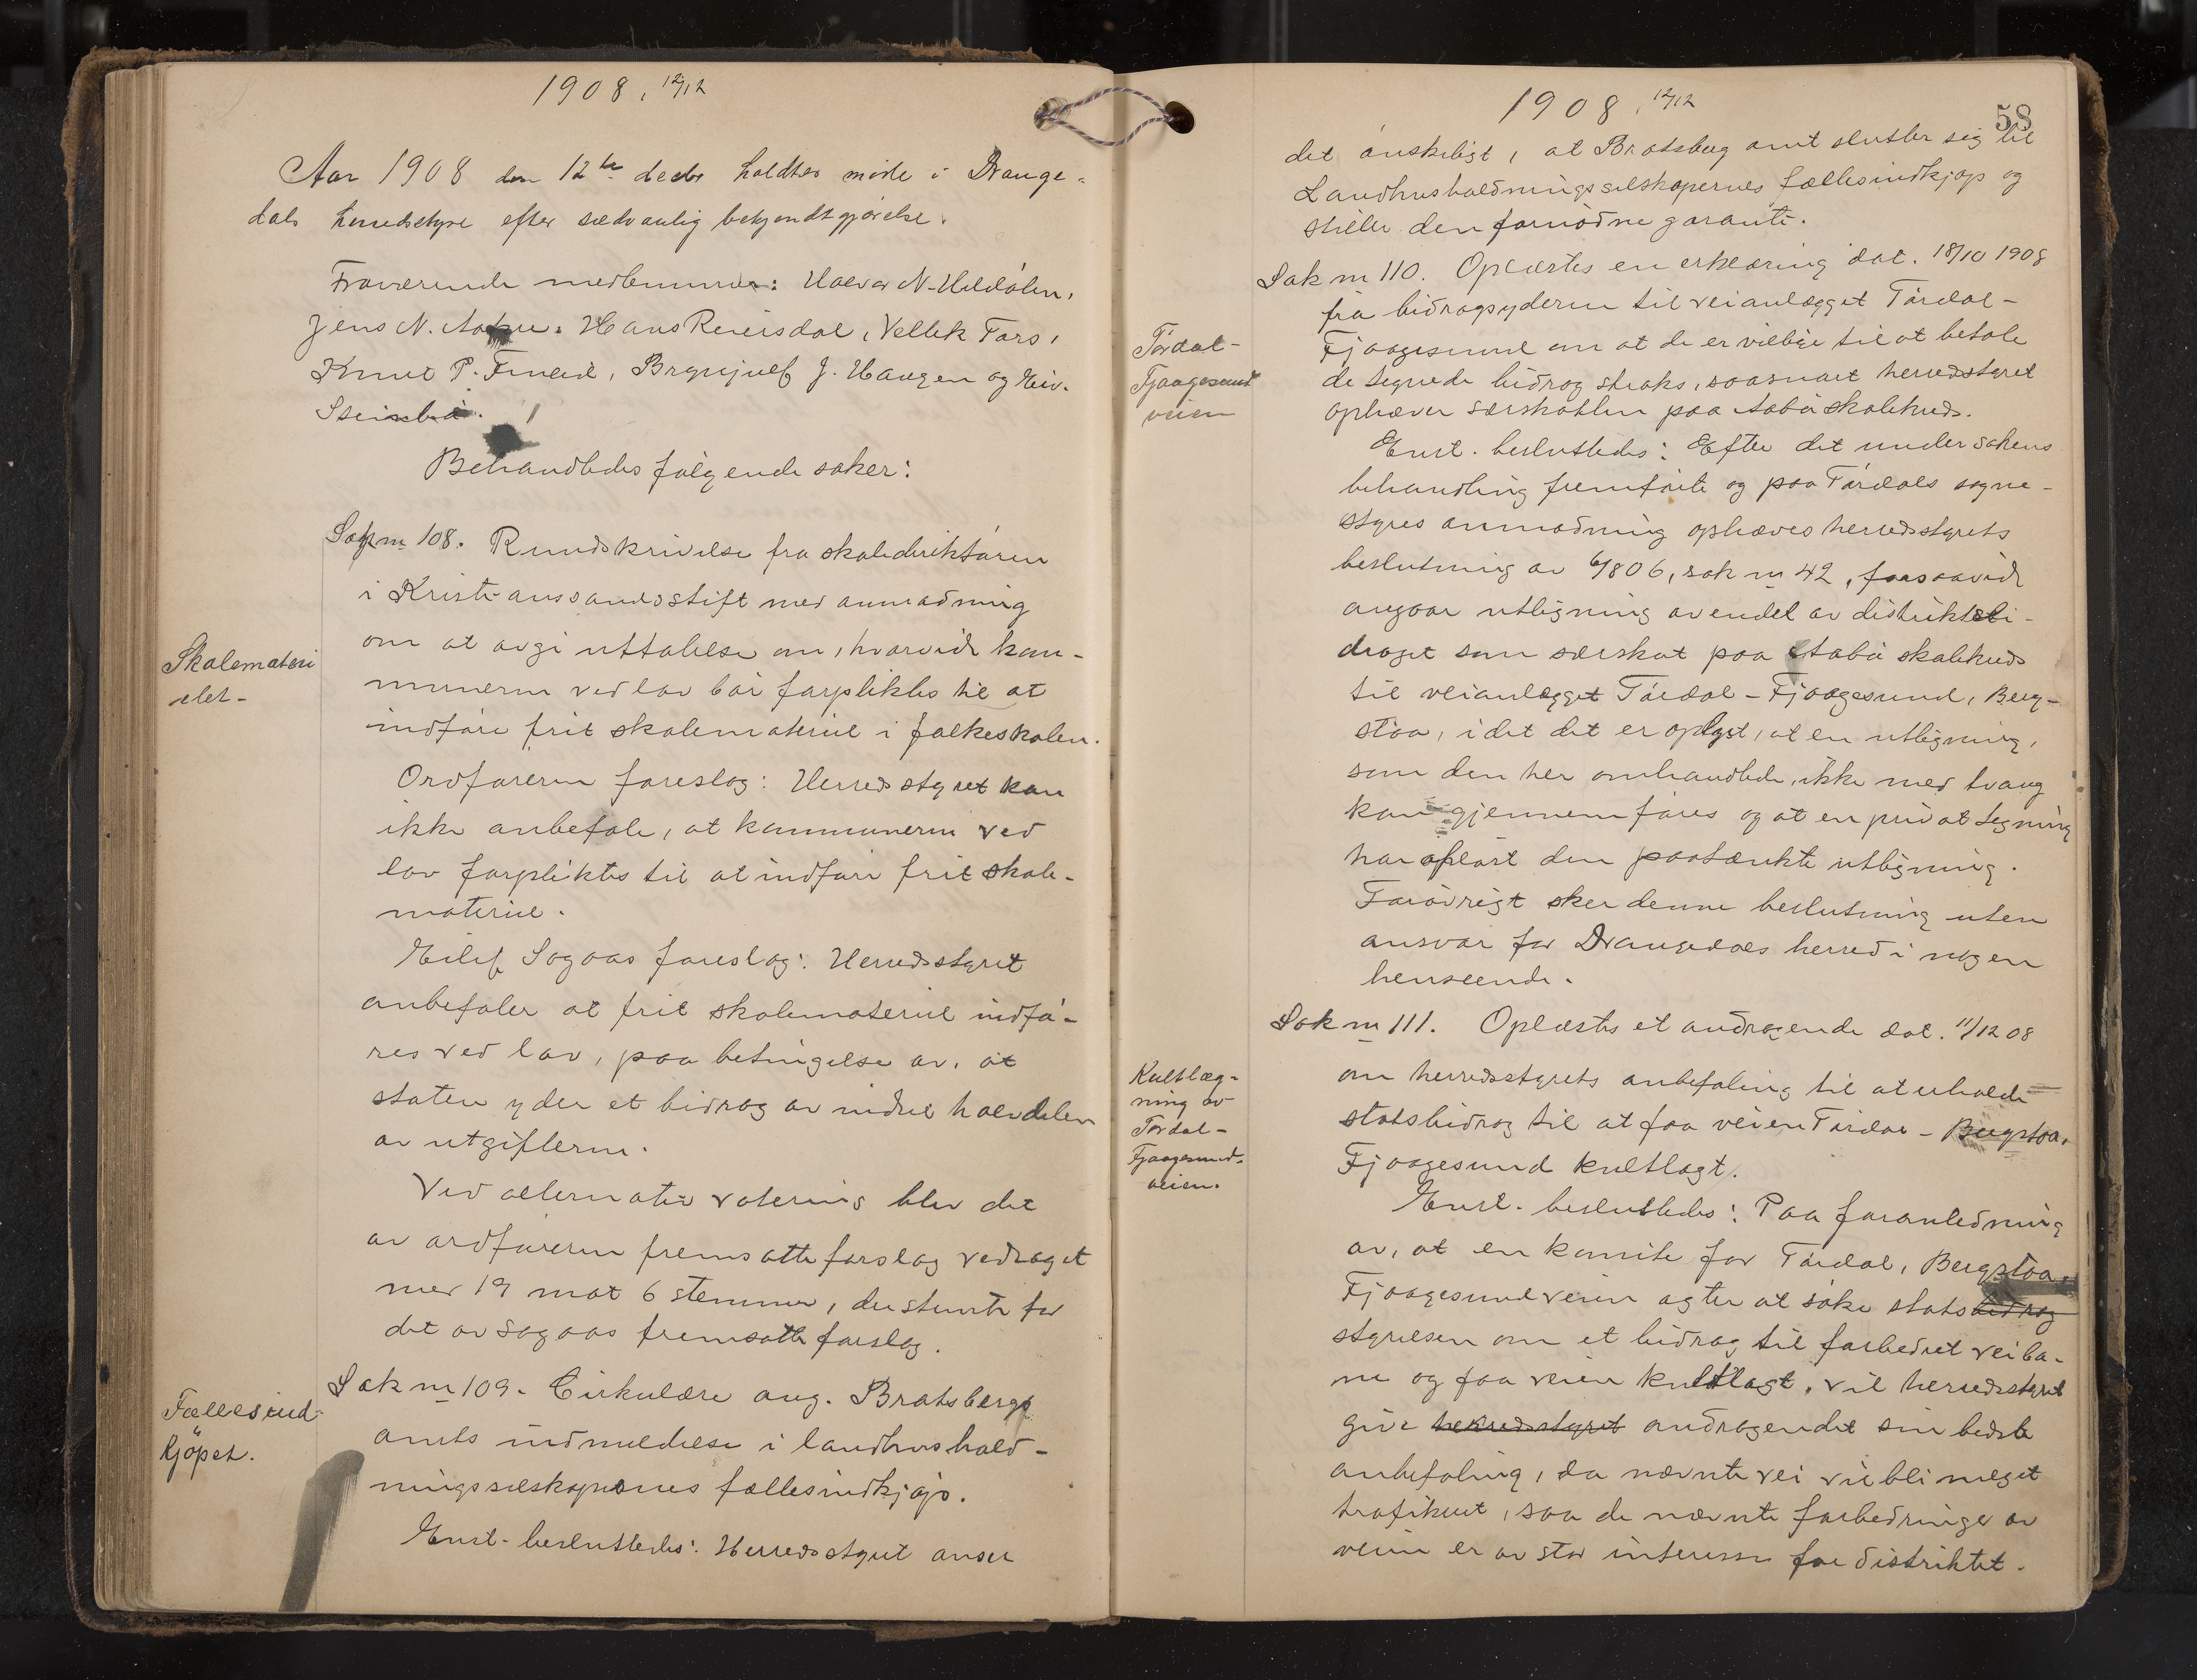 1908, 12/12
Aar 1908 den 12te decbr holdtes møte i Drange-
dals herredstyre efter sædvanlig bekjendtgjørelse.
Fraværende medlemmer: Halvor N. Heldølen,
Jens N. Hans Reiersdal, Vellek Tors,
Knut P. Brynjulf J. Haugen og
Behandledes følgende saker:
Sak nr 108. Rundskrivelse fra skoledirektøren
i Kristianssands stift med anmodning
om at avgi uttalelse om, hvorvidt kom-
munerne ved lov bør forpliktes til at
indføre frit skolemateriel i folkeskolen.
Skolemateri
elet-
Ordføreren foreslog: Herredsstyret kan
ikke anbefale, at kommunerne ved
lov forpliktes til at indføre frit skole-
materiel.
Eilef Sogaas foreslog: Herredsstyret
anbefaler at frit skolemateriel indfø-
res ved lov, paa betingelse av, at
staten yder et bidrag av indtil halvdelen
av utgifterne.
Ved alternativ votering blev det
av ordføreren fremsatte forslag vedtaget
med 19 mot 6 stemmer, der stemte for
det av Sogaas fremsatte forslag.
Sak nr 109. Cirkulære ang. Bratsbergs
amts indmeldelse i landhushold-
ningsselskapernes fællesindkjøp.
Fællesind-
kjöpet.
Enst. besluttedes: Herredsstyret anser
1908, 12/12
58
det ønskeligt, at Bratsberg amt slutter sig til
Landhusholdningsselskapernes fællesindkjøp og
stiller den fornødne garanti.
Sak nr 110. Oplæstes en erklæring dat. 18/10 1908
fra bidragsyderne til veianlægget Tørdal-
Fjaagesund om at de er villige til at betale
de tegnede bidrag straks, saasnart herredsstyret
ophæver særskatten paa Aabø skolekreds.
Tørdal-
Fjaagesund
veien
Enst. besluttedes: Efter det under sakens
behandling fremførte og paa Tørdals sogne-
styres anmodning ophæves herredsstyrets
beslutning av 6/8 06, sak nr 42, forsaavidt
angaar utligning av endel av distriktsbi-
draget som særskat paa Aabø skolekreds
til veianlægget Tørdal-Fjaagesund, Berg-
støa, idet det er oplyst, at en utligning,
som den her omhandlede, ikke med tvang
kan gjennemføres og at en privat tegning
har opløst den paatænkte utligning.
Forøvrigt sker denne beslutning uten
ansvar for Drangedals herred i nogen
henseende.
Sak nr 111. Oplæstes et andragende dat. 11/12 08
om herredsstyrets anbefaling til at erholde
statsbidrag til at faa veien Tørdal - Bergstøa,
Fjaagesund kultlagt.
Kultlæg-
ning av
Tørdal-
Fjaagesund-
veien.
Enst. besluttedes: Paa foranledning
av, at en komite for Tørdal, Bergstøa,
Fjaagesundveien agter at søke statsbidrag
styrelsen om et bidrag til forbedret veiba-
ne og faa veien kultlagt, vil herredsstyret
give herredsstyret andragendet sin bedste
anbefaling, da nævnte vei vil bli meget
trafikert, saa de nævnte forbedringer av
veien er av stor interesse for distriktet.